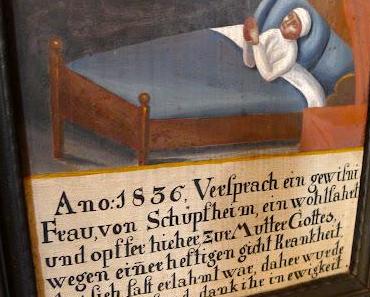 Ano:1836, Versprach ein gewisni
Frau, von Schüpfheim, ein wohlfahrt
und opffer hieher zur Mutter Gottes,
wegen einer heftigen gicht Krankheit
sich fast erlahmt war, daher wurde
dank ihr in ewigkeit.